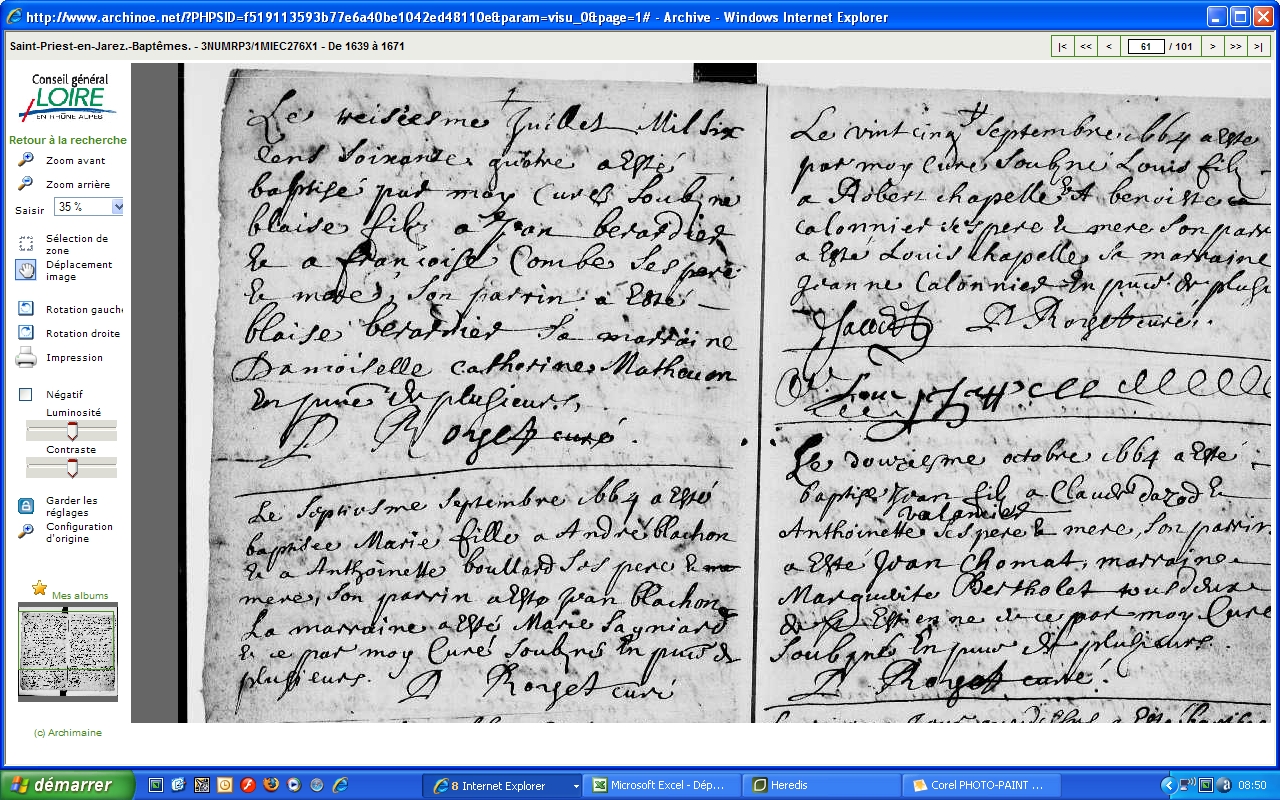 http://www.archinoe.net/?PHPSID=f519113593b77e6a40be1042ed48110e&param=visu_0&page=1# - Archive - Windows Internet Explorer
Saint-Priest-en-Jarez.-Baptêmes. - 3NUMRP3/1MIEC276X1 - De 1639 à 1671
|< << < 61 / 101 > >> >|
Conseil général
LOIRE
EN RHÔNE ALPES
Retour à la recherche
Zoom avant
Zoom arrière
Saisir 35 %
Sélection de
zone
Déplacement
image
Rotation gauche
Rotation droite
Impression
Négatif
Luminosité
Contraste
Garder les
réglages
Configuration
d'origine
Mes albums
(c) Archimaine
Le Juillet Mil six
Cens soixante quatre a Esté
baptisé par moy Curé Soubzné
blaise filz a Jean berardier
& a françoise Combe ses pere
& mere, Son parrin a Esté
blaise berardier Sa marraine
Damoiselle catherine Mathevon
En puce de plusieurs,
Rorget curé.
Le Septiesme Septembre 1664 a Esté
baptisee Marie fille a André blachon
& a Anthoinette boullard Ses pere &
mere, Son parrin a Esté Jean blachon
La marraine a Esté Marie
& ce par moy Curé Soubzné En puce de
plusieurs. Rorget curé
Le vint cinq Septembre 1664 a Esté
par moy Curé Soubzné Louis filz
a Robert chapelle & A benoiste
Calonnier ses pere & mere Son parr
a Esté Louis chapelle, sa marraine
Jeanne Calonnier En puce de plusi
Rorget curé.
Le douziesme octobre 1664 a Esté
baptisé Jean filz a Claude &
valancier
Anthoinette ses pere & mere, Son parrin
a Esté Jean Chomat, marraine
Marguerite Bertholet tous deux
de St Estienne & ce par moy Curé
Soubzné En puce de plusieurs
Rorget curé.
démarrer 8 Internet Explorer Microsoft Excel - Dép... Heredis Corel PHOTO-PAINT ... 08:50